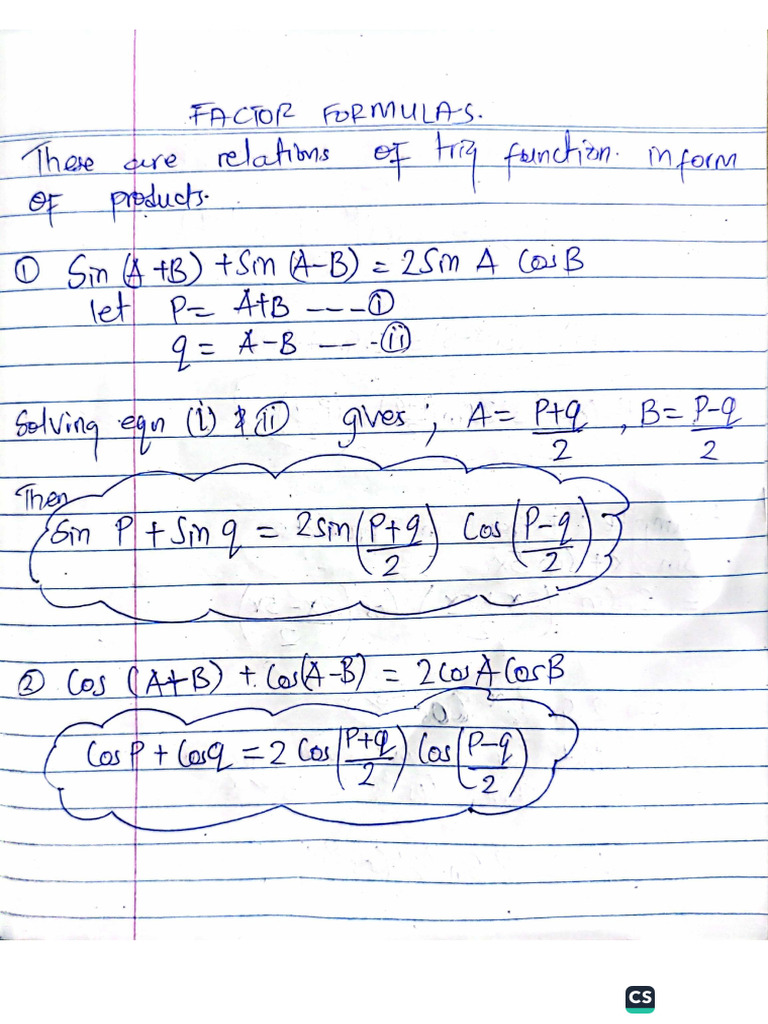 FACTOR FORMULAS.
These are relations of trig function. in form
of products.
① Sin (A+B) + Sin (A-B) = 2 Sin A Cos B
let P = A+B ----- ①
q = A-B -- - -(ii)
Solving eqn (i) & (ii) gives ; A = P+q/2 , B = P-q/2
Then
Sin P + Sin q = 2 Sin (P+q/2) Cos (P-q/2)
② Cos (A+B) + Cos(A-B) = 2 cos A Cos B
Cos P + Cos q = 2 Cos (P+q/2) Cos (P-q/2)
CS